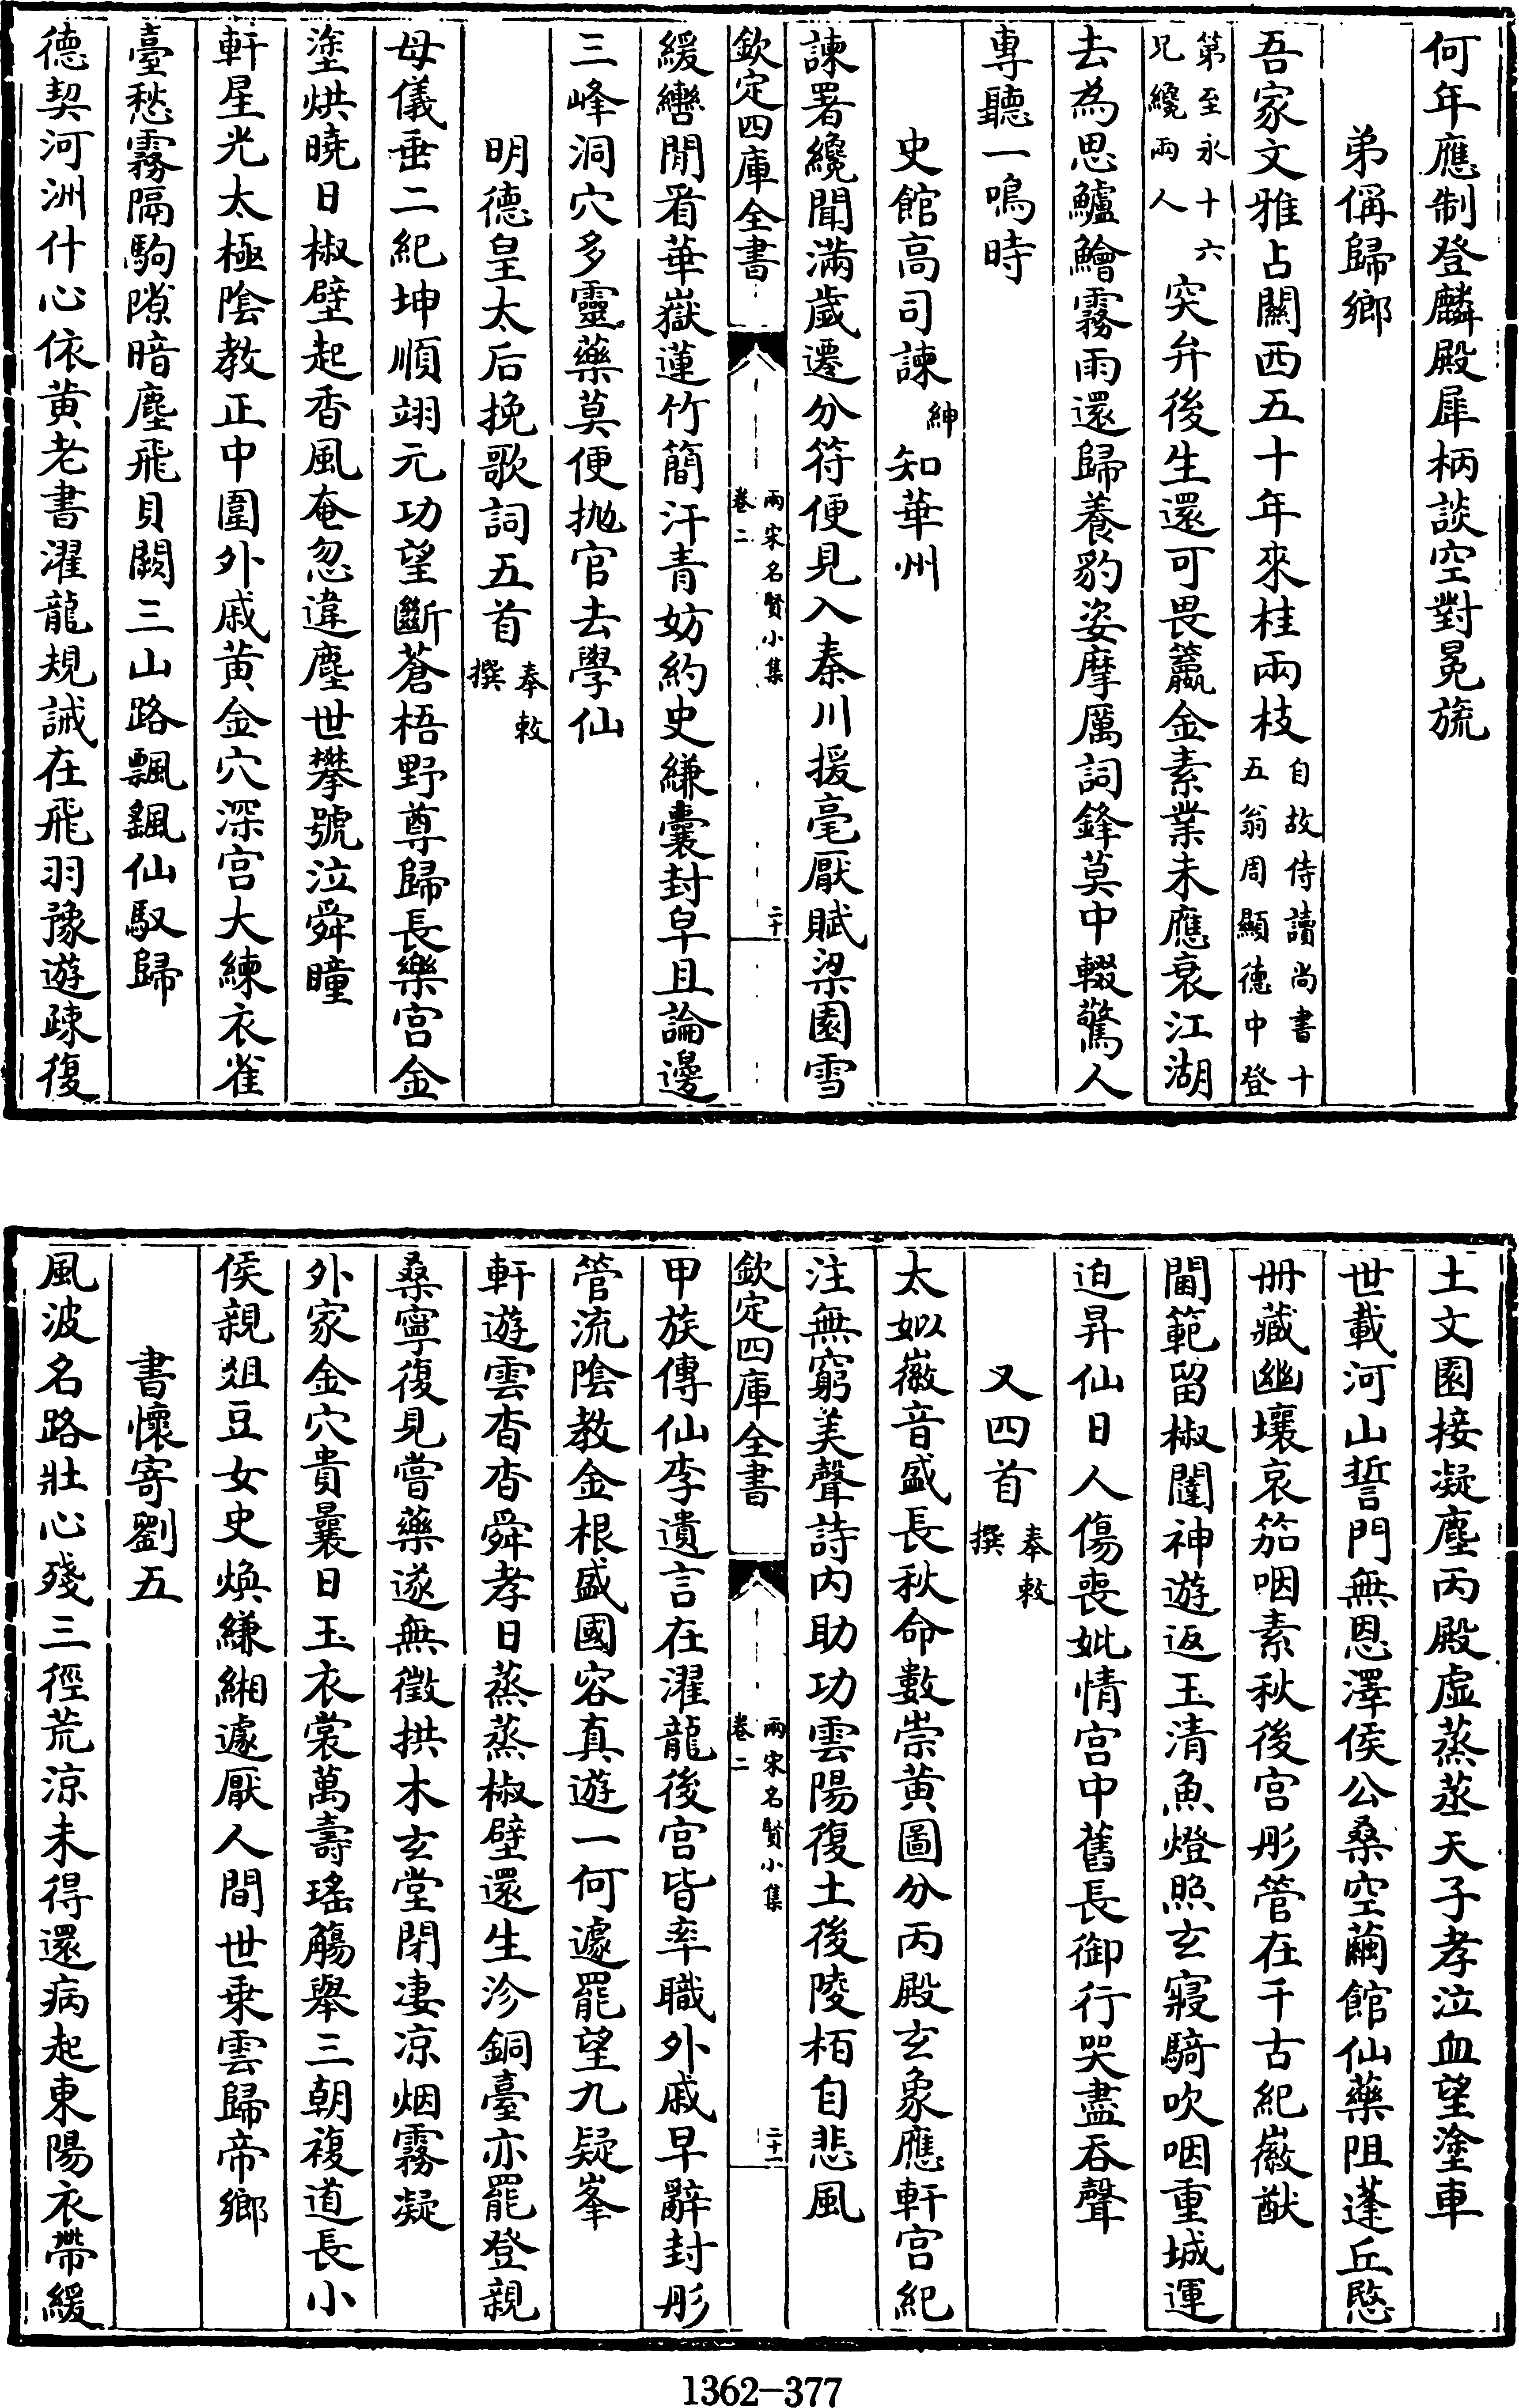 何年應制登麟殿犀柄談空對冕旒
弟偁歸鄉
吾家文雅占關西五十年來桂兩枝自故侍讀尚書十五翁周顯德中登
第至永十六兄纔兩人突弁後生還可畏籯金素業未應衰江湖
去為思鱸鱠霧雨還歸養豹姿摩厲詞鋒莫中輟驚人
專聽一鳴時
史館高司諫紳知華州
諫署纔聞滿歲遷分符便見入秦川援毫厭賦梁園雪
欽定四庫全書 兩宋名賢小集 卷二 二十
緩轡閒看華嶽蓮竹簡汗青妨約史縑囊封皁且論邊
三峰洞穴多靈藥莫便拋官去學仙
明德皇太后挽歌詞五首奉敕撰
母儀垂二紀坤順翊元功望斷蒼梧野尊歸長樂宮金
塗烘曉日椒壁起香風奄忽違塵世攀號泣舜瞳
軒星光太極陰教正中闈外戚黃金穴深宮大練衣雀
臺愁霧隔駒隙暗塵飛貝闕三山路飄颻仙馭歸
德契河洲什心依黃老書濯龍規誡在飛羽豫遊疎復
土文園接凝塵丙殿虛蒸蒸天子孝泣血望塗車
世載河山誓門無恩澤侯公桑空繭館仙藥阻蓬丘愍
冊藏幽壤哀笳咽素秋後宮彤管在千古紀徽猷
閫範留椒闥神遊返玉清魚燈照玄寢騎吹咽重城運
迫昇仙日人傷喪妣情宮中舊長御行哭盡吞聲
又四首奉敕撰
太姒徽音盛長秋命數崇黃圖分丙殿玄象應軒宮紀
注無窮美聲詩內助功雲陽復土後陵栢自悲風
欽定四庫全書 兩宋名賢小集 卷二 二十一
甲族傳仙李遺言在濯龍後宮皆率職外戚早辭封彤
管流陰教金根盛國容真遊一何遽罷望九疑峯
軒遊雲杳杳舜孝日蒸蒸椒壁還生沴銅臺亦罷登親
桑寧復見嘗藥遂無徵拱木玄堂閉凄涼烟霧凝
外家金穴貴曩日玉衣裳萬壽瑤觴舉三朝複道長小
侯親俎豆女史煥縑緗遽厭人間世乘雲歸帝鄉
書懷寄劉五
風波名路壯心殘三徑荒涼未得還病起東陽衣帶緩
1362-377